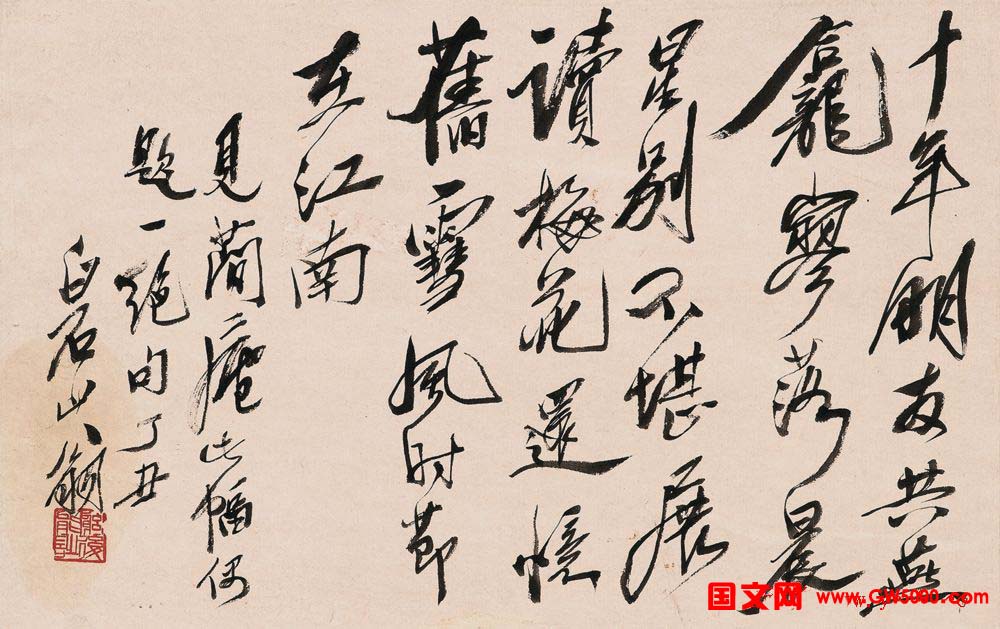 十年朋友共燕
龕寥落晨
星别不堪展
讀梅花還憶
舊雪風時節
在江南
見蕳庵此幅偶
題一絶句丁丑
白石山翁
国文网 www.GW5000.com